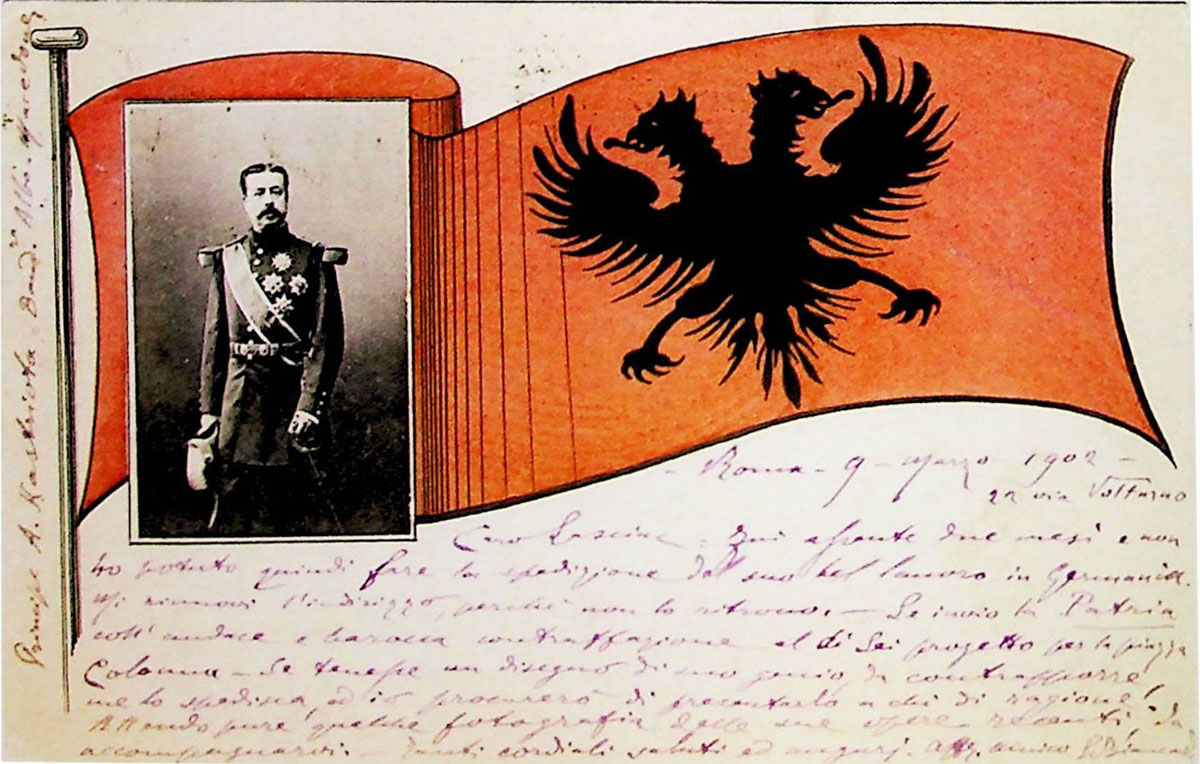 Principe A. Kastriota - Band.ª Alb.
- Roma - 9 - Marzo 1902 -
22 via Volturno
Caro - due mesi e non
ho potuto quindi fare la spedizione del suo bel lavoro in Germania.
Mi rinnovi l'indirizzo, perchè non lo ritrovo. - Le invio la Patria
coll'audace e barocca contraffazione al di Lei progetto per la piazza
Colonna - Se tenesse un disegno di suo genio, da contrapporre,
me lo spedisca, ed io procurerò di presentarlo a chi di ragione!
Attendo pure qualche fotografia delle sue opere recenti da
accompagnarvi. - Tanti cordiali saluti ed augurj. Aff. amico